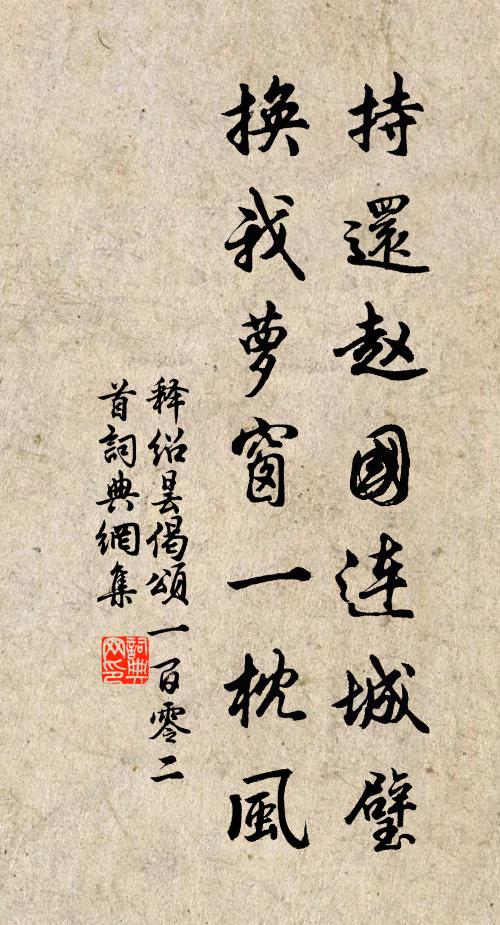 持還趙國連城璧
換我夢窗一枕風
释绍昙偈頌一百零二
首詞典網集
詞典
网印